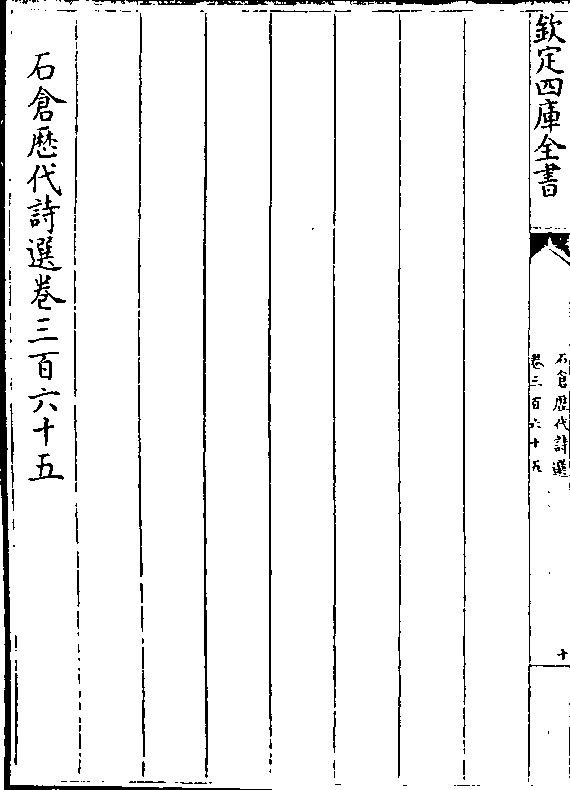 欽定四庫全書
石倉歷代詩選
卷三百六十五
十
石倉歷代詩選卷三百六十五